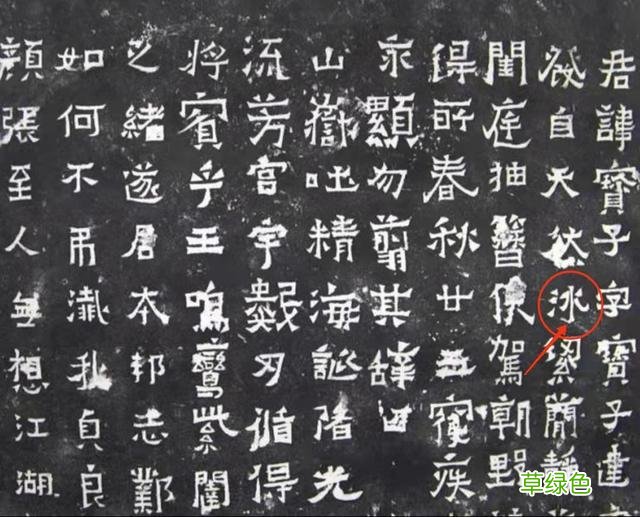 君諱寶子字寶子建
發自天然冰潔簡靜
閨庭抽簪俟駕朝野
得所春秋廿五寢疾
永顯勿翦其辭曰
山嶽吐精海誕陼光
流芳宮宇數刃循得
將賓乎王鳴鸞紫闥
之緒遂居本邦志鄴
如何不弔殲我貞良
顏張至人無想江湖
草绿色